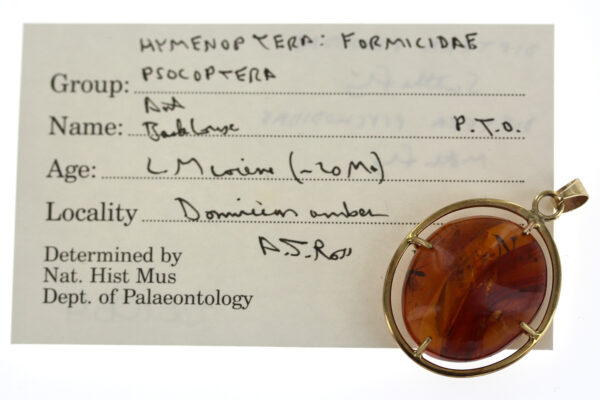 HYMENOPTERA: FORMICIDAE
Group: PSOCOPTERA
Ant
Name: Bark louse P.T.O.
Age: L Miocene (~20 Ma)
Locality Dominican amber
Determined by A.J. Ross
Nat. Hist Mus
Dept. of Palaeontology